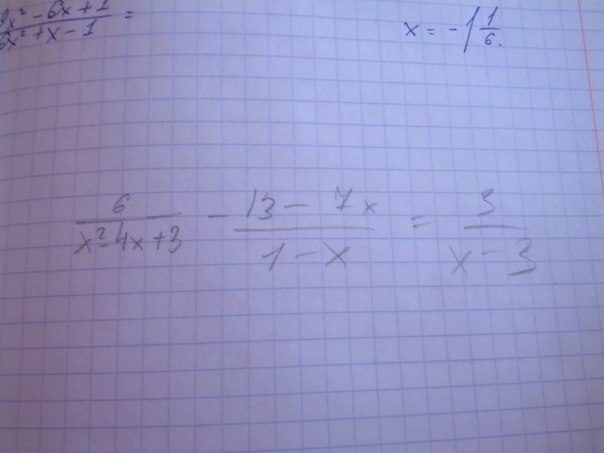 9x² - 6x + 1 / 6x² + x - 1 =
x = -1 1/6.
6 / x² - 4x + 3 - 13 - 7x / 1 - x = 3 / x - 3